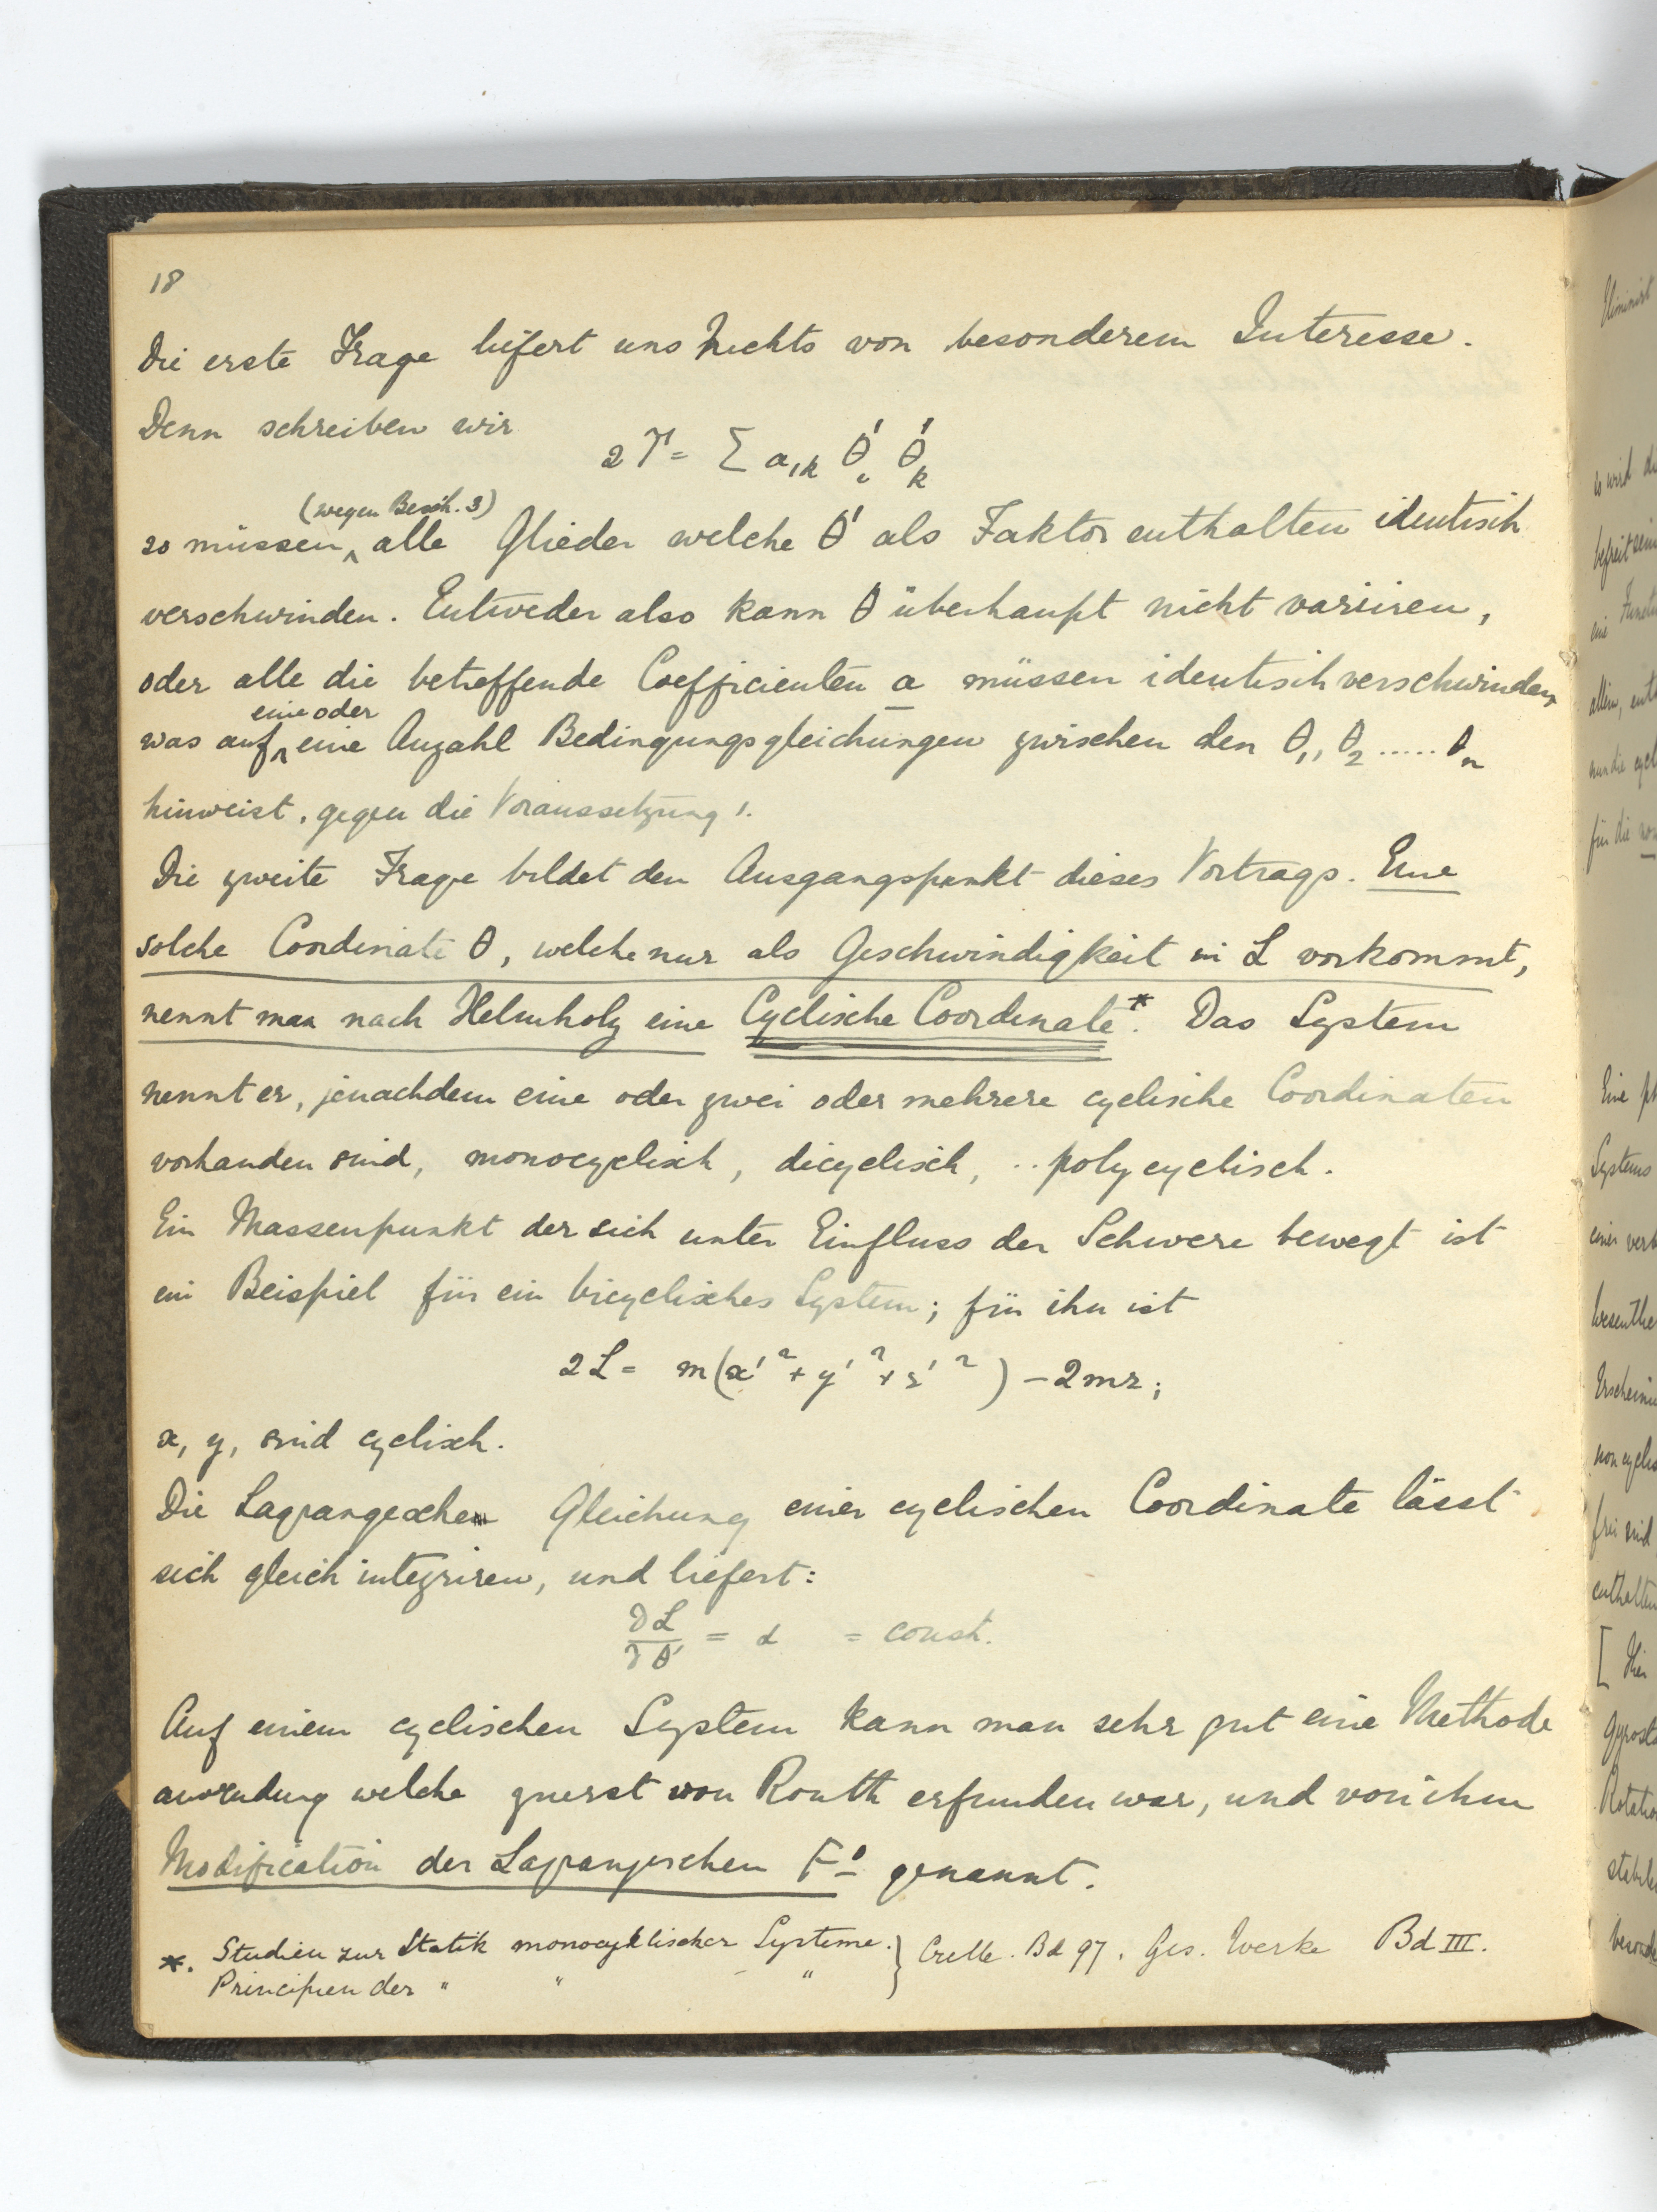 18
Die erste Frage liefert uns Nichts von besonderem Interesse.
Denn schreiben wir
2T = Σ a_{ik} θ'_i θ'_k
(wegen Besch. 3)
so müssen ^ alle Glieder welche θ' als Faktor enthalten identisch
verschwinden. Entweder also kann θ überhaupt nicht variiren,
oder alle die betreffende Coefficienten a müssen identisch verschwinden,
eine oder
was auf ^ eine Anzahl Bedingungsgleichungen zwischen den θ₁, θ₂ ..... θₙ
hinweist, gegen die Voraussetzung 1.
Die zweite Frage bildet den Ausgangspunkt dieses Vortrags. Eine
solche Coordinate θ, welche nur als Geschwindigkeit in L vorkommt,
nennt man nach Helmholz eine Cyclische Coordinate*. Das System
nennt er, jenachdem eine oder zwei oder mehrere cyclische Coordinaten
vorhanden sind, monocyclisch, dicyclisch, .. polycyclisch.
Ein Massenpunkt der sich unter Einfluss der Schwere bewegt ist
ein Beispiel für ein bicyclisches System; für ihn ist
2L = m(x'² + y'² + z'²) – 2mz;
x, y, sind cyclisch.
Die Lagrangeschen Gleichung einer cyclischen Coordinate lässt
sich gleich integriren, und liefert:
∂L/∂θ' = α = const.
Auf einem cyclischen System kann man sehr gut eine Methode
welche zuerst von Routh erfunden war, und von ihm
Modification der Lagrangeschen F^n genannt.
*. Studien zur Statik monocyklischer Systeme. } Crelle. Bd 97. Ges. Werke Bd III.
Principien der " " "
Eliminirt
so wird
befreit sein
eine Funct
allein,
nun die cycl
für die
Eine
Systems
einer
Erscheinu
non cyclis
frei sind
enthalten
[ Hier
Gyrost
Rotatio